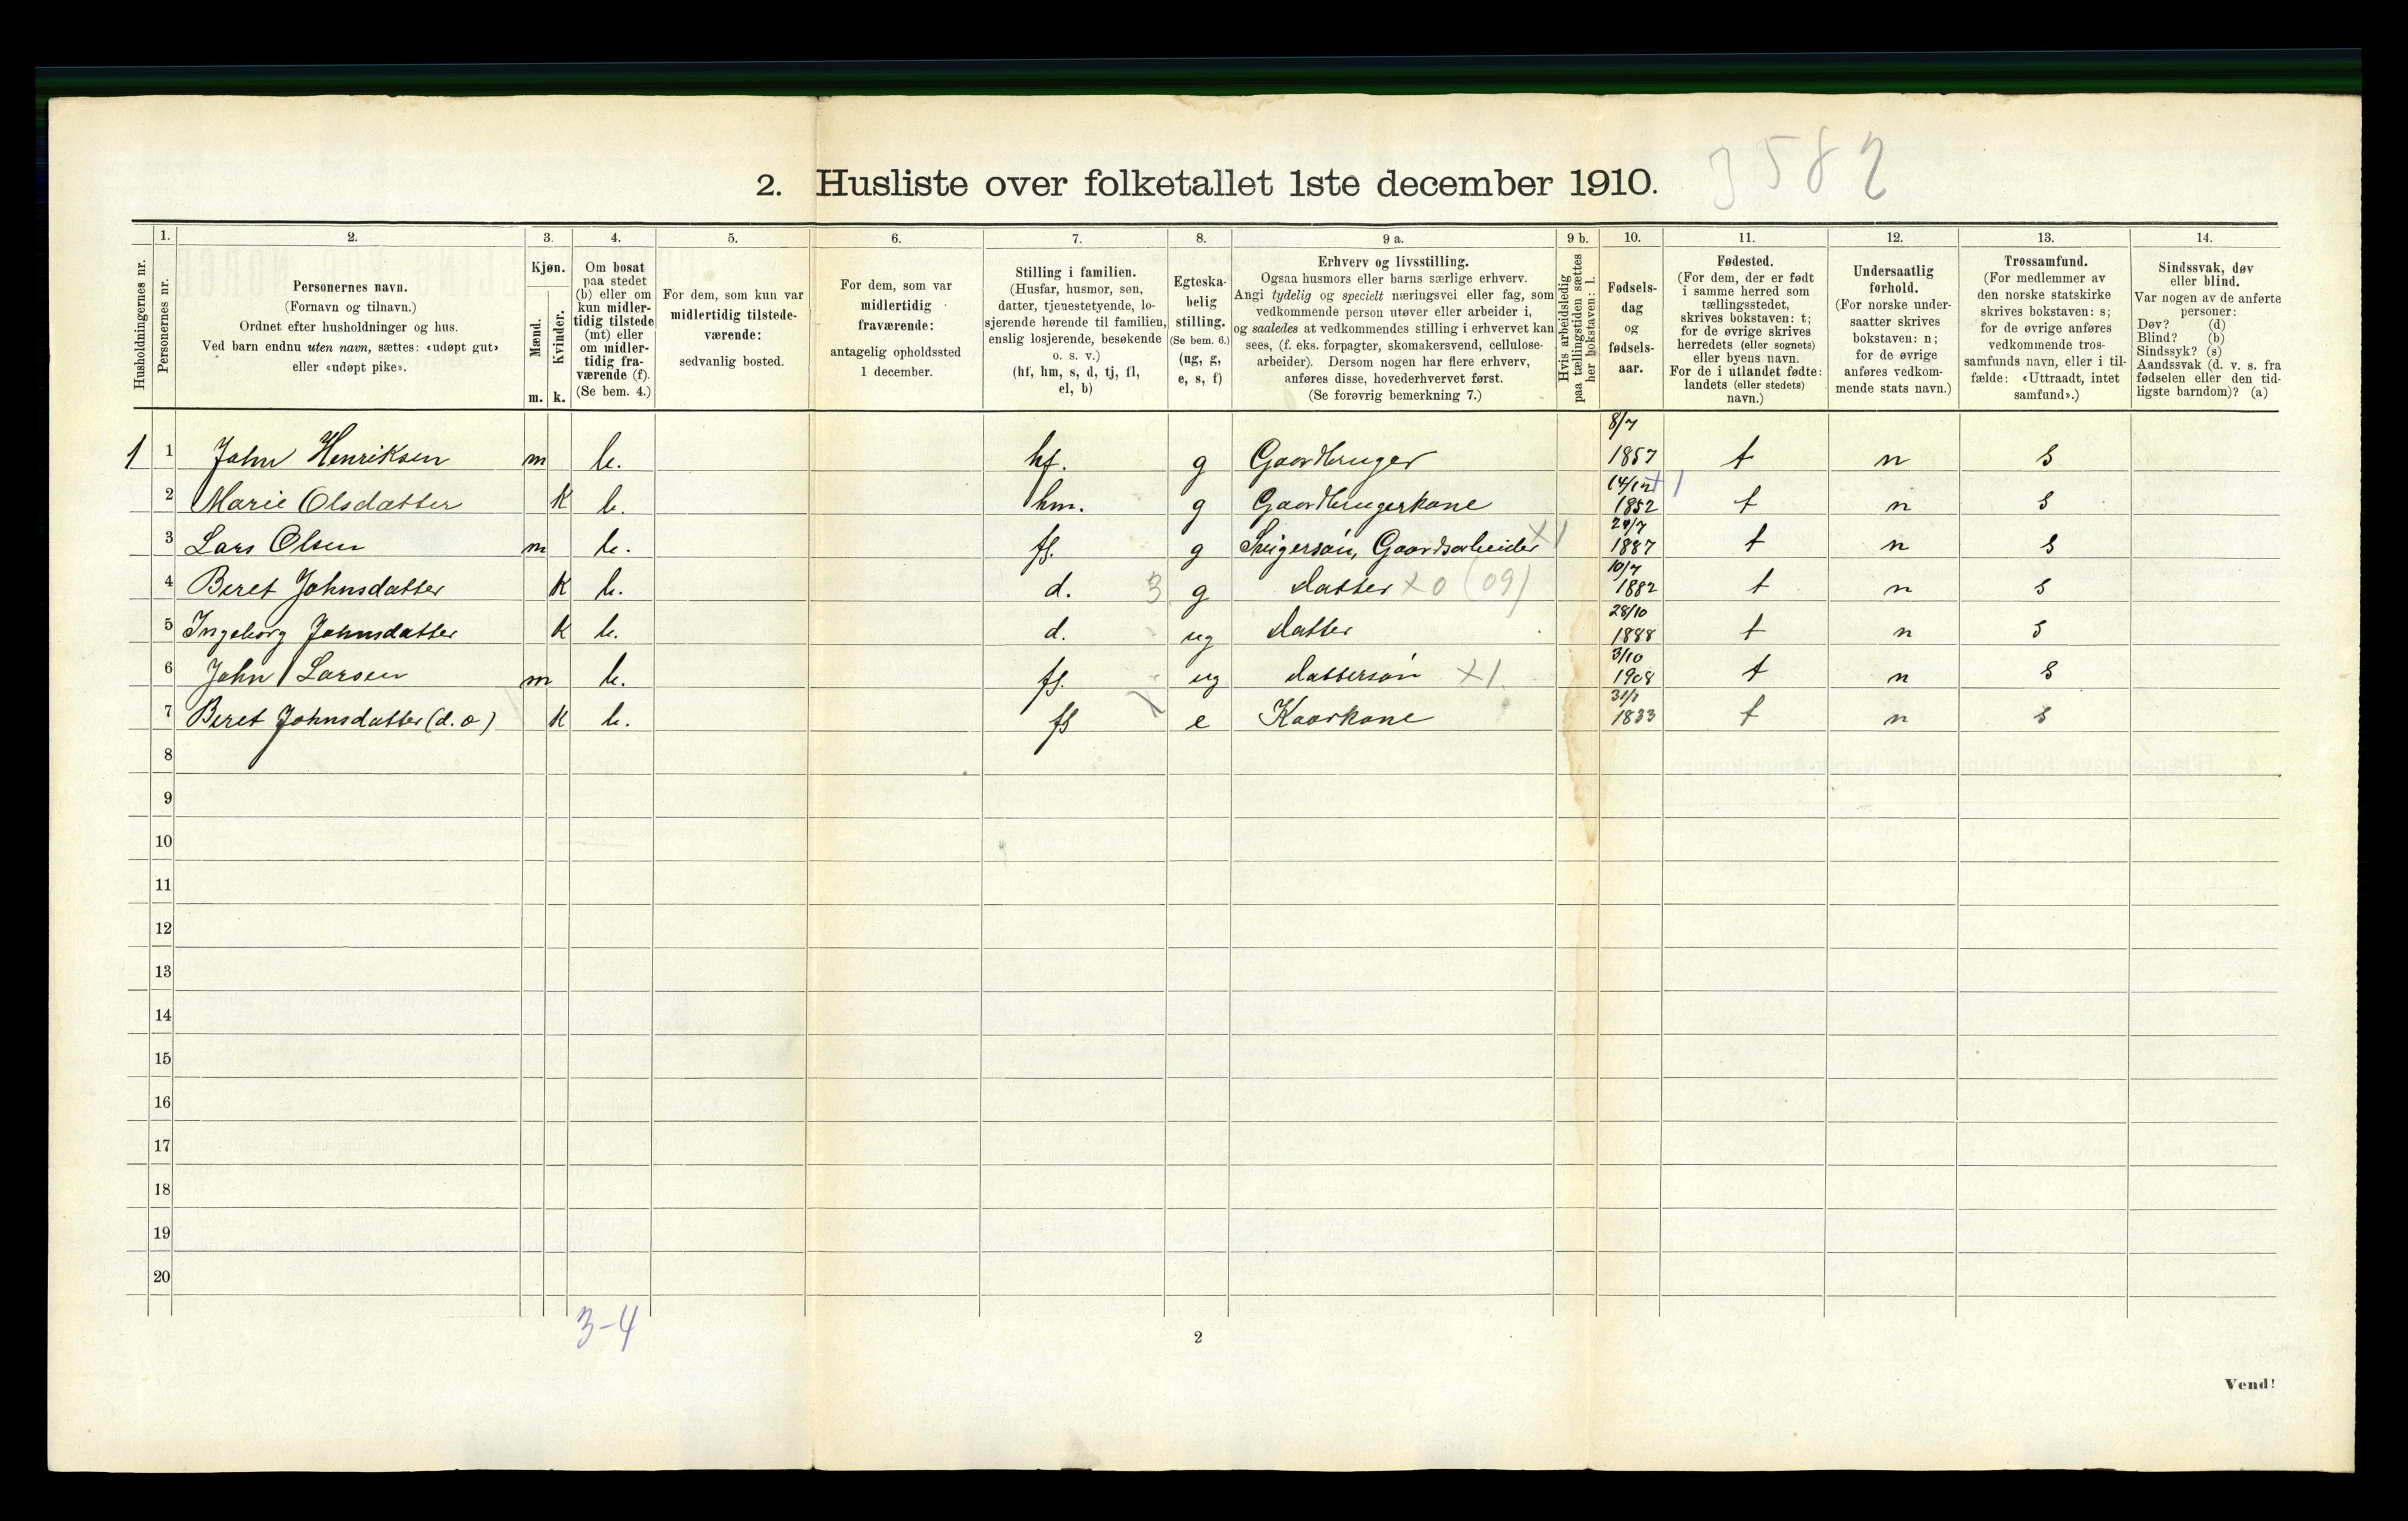 3582
2. Husliste over folketallet 1ste december 1910.
Husholdningernes nr.
1.
Personernes nr.
2.
Personernes navn.
(Fornavn og tilnavn.)
Ordnet efter husholdninger og hus.
Ved barn endnu uten navn, sættes: «udøpt gut»
eller «udøpt pike».
3.
Kjøn.
Mænd.
Kvinder.
m. k.
4.
Om bosat
paa stedet
(b) eller om
kun midler-
tidig tilstede
(mt) eller
om midler-
tidig fra-
værende (f).
(Se bem. 4.)
5.
For dem, som kun var
midlertidig tilstede-
værende:
sedvanlig bosted.
6.
For dem, som var
midlertidig
fraværende:
antagelig opholdssted
1 december.
7.
Stilling i familien.
(Husfar, husmor, søn,
datter, tjenestetyende, lo-
sjerende hørende til familien,
enslig losjerende, besøkende
o. s. v.)
(hf, hm, s, d, tj, fl,
el, b)
8.
Egteska-
belig
stilling.
(Se bem. 6.)
(ug, g,
e, s, f)
9 a.
Erhverv og livsstilling.
Ogsaa husmors eller barns særlige erhverv.
Angi tydelig og specielt næringsvei eller fag, som
vedkommende person utøver eller arbeider i,
og saaledes at vedkommendes stilling i erhvervet kan
sees, (f. eks. forpagter, skomakersvend, cellulose-
arbeider). Dersom nogen har flere erhverv,
anføres disse, hovederhvervet først.
(Se forøvrig bemerkning 7.)
9 b.
Hvis arbeidsledig
paa tællingstiden sættes
her bokstaven: l.
10.
Fødsels-
dag
og
fødsels-
aar.
11.
Fødested.
(For dem, der er født
i samme herred som
tællingsstedet,
skrives bokstaven: t;
for de øvrige skrives
herredets (eller sognets)
eller byens navn.
For de i utlandet fødte:
landets (eller stedets)
navn.)
12.
Undersaatlig
forhold.
(For norske under-
saatter skrives
bokstaven: n;
for de øvrige
anføres vedkom-
mende stats navn.)
13.
Trossamfund.
(For medlemmer av
den norske statskirke
skrives bokstaven: s;
for de øvrige anføres
vedkommende tros-
samfunds navn, eller i til-
fælde: «Uttraadt, intet
samfund».)
14.
Sindssvak, døv
eller blind.
Var nogen av de anførte
personer:
Døv? (d)
Blind? (b)
Sindssyk? (s)
Aandssvak (d. v. s. fra
fødselen eller den tid-
ligste barndom)? (a)
1 1 John Henriksen m b. hf. g Gaardbruger 8/7 1857 t n s
2 Marie Olsdatter K b. hm. g Gaardbrugerkone 14/12 1852 t n s
3 Lars Olsen m b. fl. g Svigersøn, Gaardsarbeider x1 24/7 1887 t n s
4 Beret Johnsdatter K b. d. 3 g datter x0 (09) 10/7 1882 t n s
5 Ingeborg Johnsdatter K b. d. ug datter 28/10 1888 t n s
6 John Larsen m b. fl. ug dattersøn x1 3/10 1908 t n s
7 Beret Johnsdatter (d. æ) K b. fl e Kaarkone 31/1 1833 t n s
8
9
10
11
12
13
14
15
16
17
18
19
20
3-4
2
Vend!